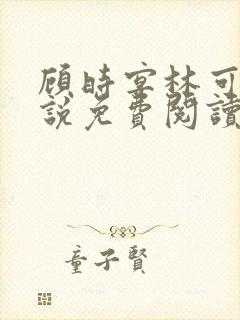 顾時宴林可
說免費閱讀
童子賢